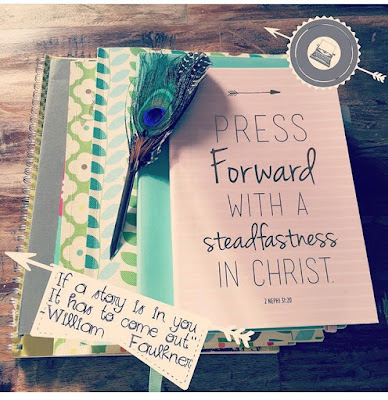 PRESS
Forward
WITH A
steadfastness
IN CHRIST.
2 NEPHI 31:20
If a story is in you
It has to come out"
-William Faulkner